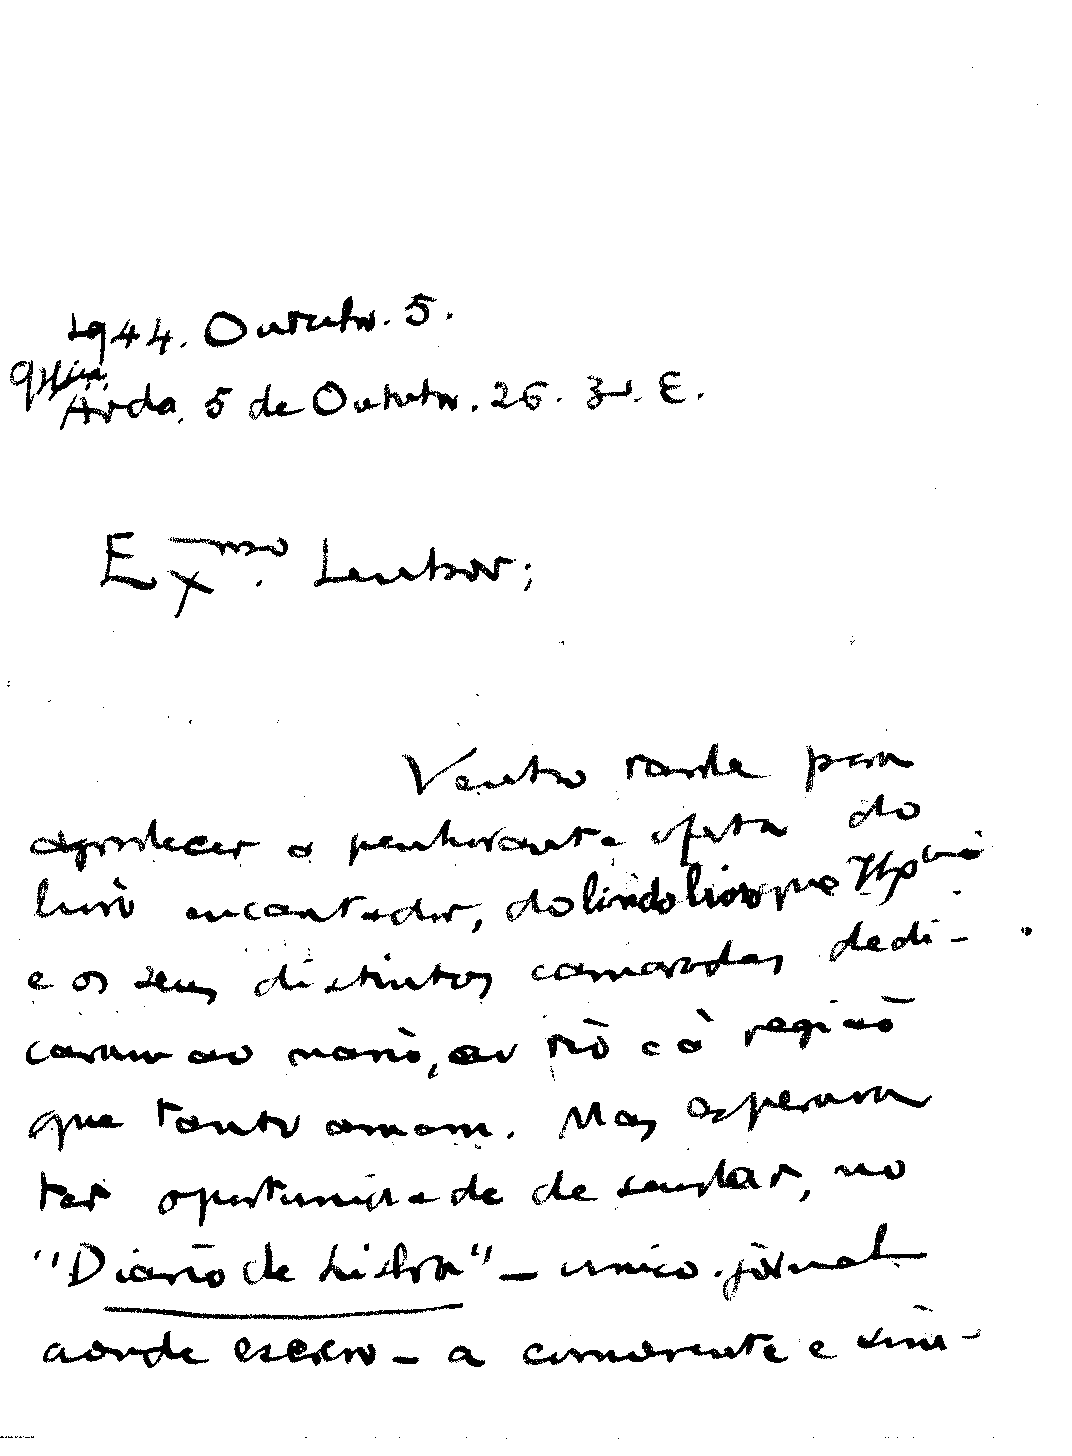 1944. Outubro. 5.
Avda. 5 de Outubro. 26. 3º. E.
Ex.mo Senhor;
Venho tarde para
agradecer a penhorante oferta do
livro encantador, do lindo livro que
e os seus distintos camaradas dedi-
caram ao navio, ao rio e à região
que tanto amam. Mas esperava
ter oportunidade de saudar, no
"Diário de Lisboa" - unico jornal
aonde escrevo - a comovente e